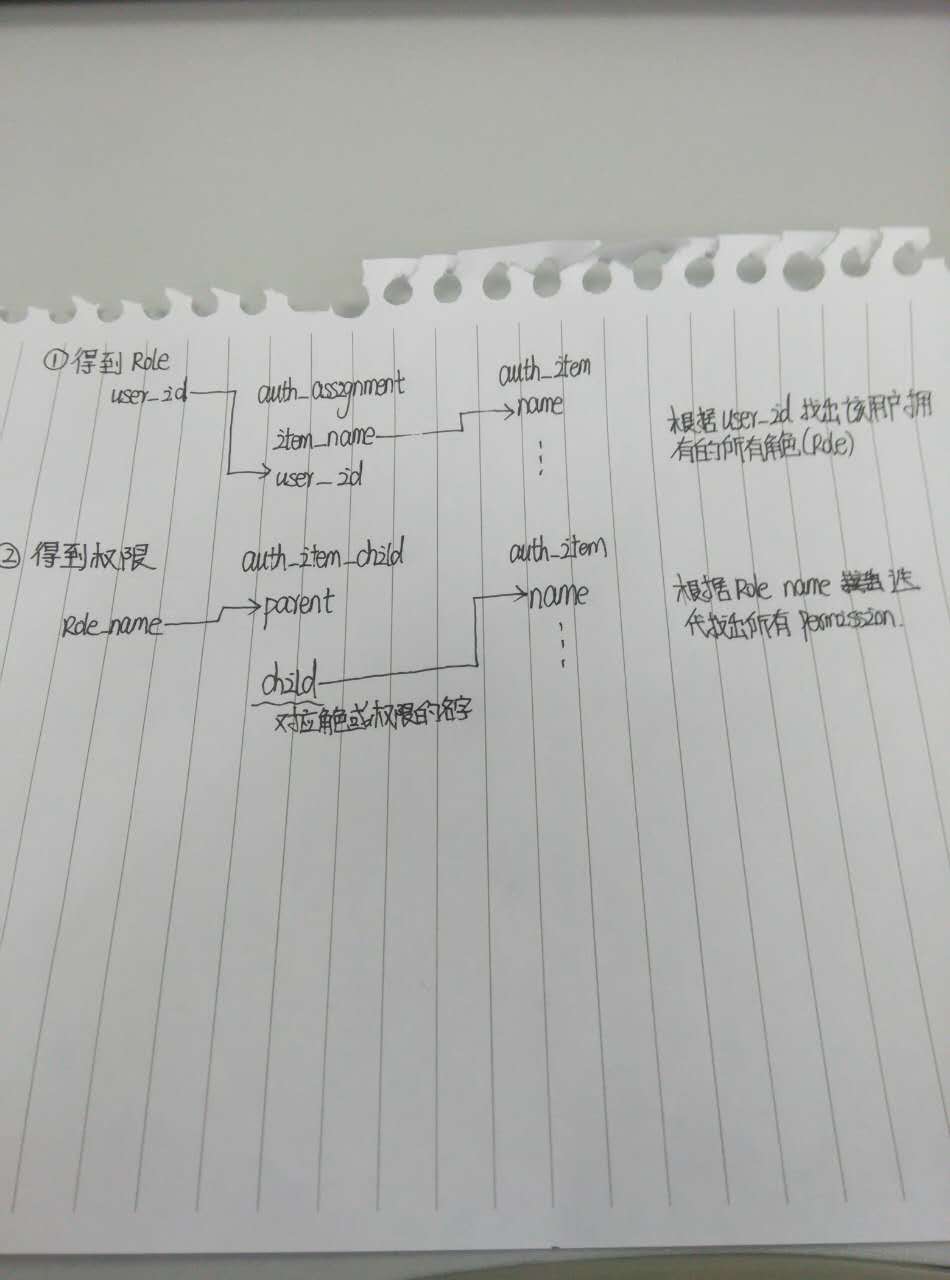 ①得到 Role
user_id
auth_assignment
item_name
user_id
auth_item
name
根据 user_id 找出该用户拥
有的所有角色(Role)
② 得到权限
Role_name
auth_item_child
parent
child
对应角色或权限的名字
auth_item
name
根据 Role name 迭
代找出所有 Permission.